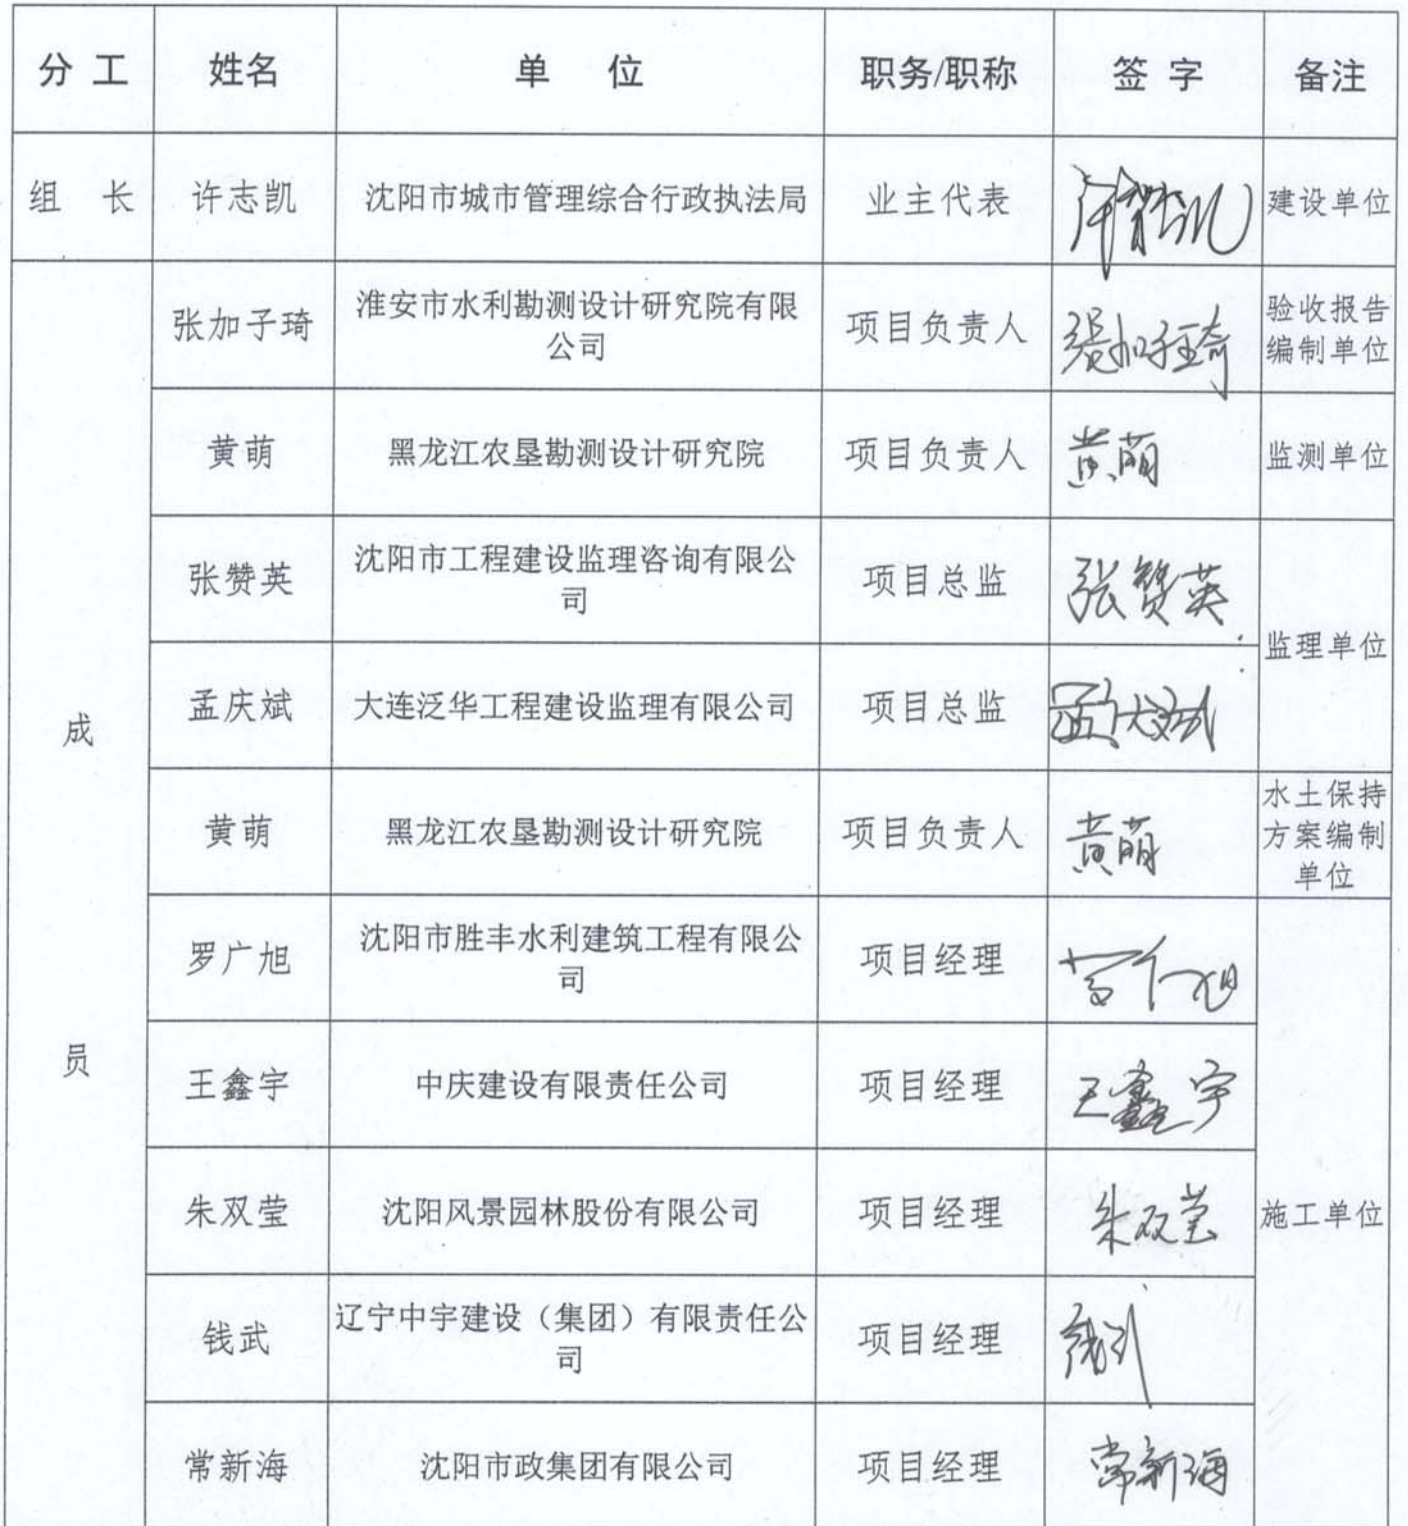 分 工 姓名 单 位 职务/职称 签 字 备注
组 长 许志凯 沈阳市城市管理综合行政执法局 业主代表 许志凯 建设单位
成
员
张加子琦 淮安市水利勘测设计研究院有限
公司 项目负责人 张加子琦 验收报告
编制单位
黄萌 黑龙江农垦勘测设计研究院 项目负责人 黄萌 监测单位
张赞英 沈阳市工程建设监理咨询有限公
司 项目总监 张赞英 监理单位
孟庆斌 大连泛华工程建设监理有限公司 项目总监 孟庆斌
黄萌 黑龙江农垦勘测设计研究院 项目负责人 黄萌 水土保持
方案编制
单位
罗广旭 沈阳市胜丰水利建筑工程有限公
司 项目经理 罗广旭 施工单位
王鑫宇 中庆建设有限责任公司 项目经理 王鑫宇
朱双莹 沈阳风景园林股份有限公司 项目经理 朱双莹
钱武 辽宁中宇建设（集团）有限责任公
司 项目经理 钱武
常新海 沈阳市政集团有限公司 项目经理 常新海